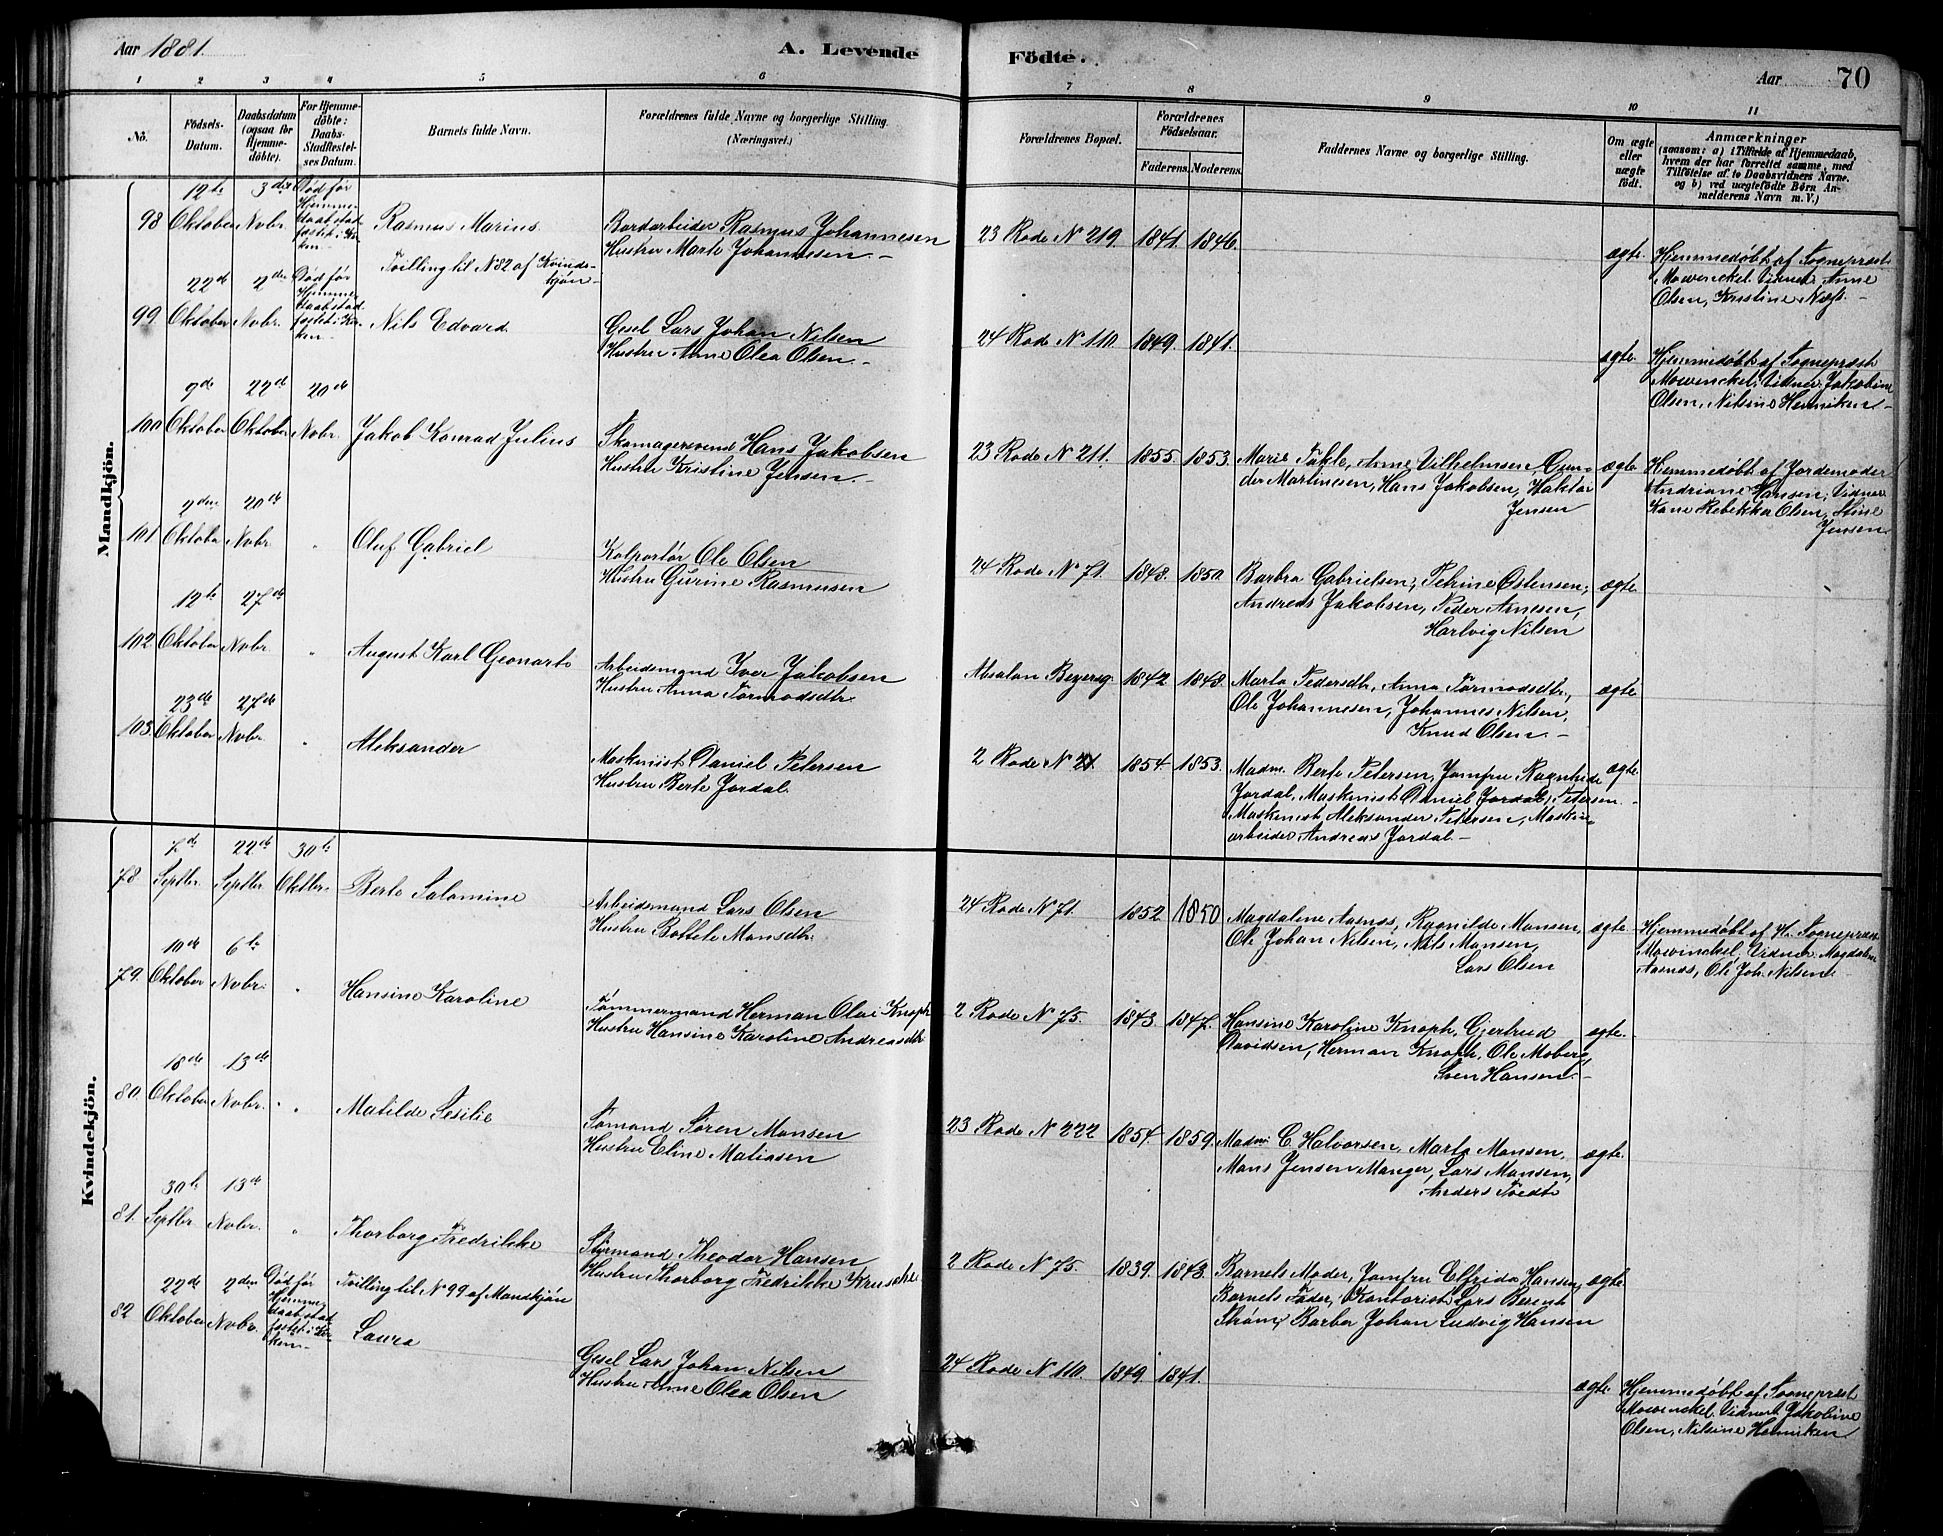 Aar 1881.
A. Levende Födte.
Aar 70
1 2 3 4 5 6 7 8 9 10 11
No.
Födsels-Datum.
Daabsdatum (ogsaa for Hjemme-døbte).
For Hjemme-döbte: Daabs-Stadfæstel-ses Datum.
Barnets fulde Navn.
Forældrenes fulde Navne og borgerlige Stilling. (Næringsvei.)
Forældrenes Bopæl.
Forældrenes Födselsaar.
Faderens. Moderens.
Faddernes Navne og borgerlige Stilling.
Om ægte eller uægte født.
Anmærkninger
(saasom: a) i Tilfælde af Hjemmedaab, hvem der har forrettet samme, med Tilföielse af to Daabsvidners Navne. og b) ved uægtefödte Börn An-melderens Navn m. V.)
Mandkjön.
98 12te Oktober 3die Novbr. Död før Hjemme-daab stad-fæstet i Kir-ken
Rasmus Marius
Bordarbeider Rasmus Johannesen
Hustru Marte Johannesen
23 Rode N 219 1841. 1846. ægte.
Hjemmedøbt af Sogneprest
Mowinckel. Vidner: Anne
Olsen, Kristine Næss.
Tvilling til N 82 af Kvinde-kjön
99. 22de Oktober 2den Novbr. Död før Hjemme-daab stad-fæstet i Kir-ken
Nils Edvard
Gesel Lars Johan Nilsen
Hustru Anne Olea Olsen
24 Rode N 110 1849. 1841. ægte.
Hjemmedøbt af Sogneprest
Mowinckel. Vidner: Jakobine
Olsen, Nilsine Henriksen
100 9de Oktober 22de Oktober 20de Novbr.
Jakob Konrad Julius
Skomagersvend Hans Jakobsen
Hustru Kristine Jensen
23 Rode N 211. 1855. 1853.
Marie Takle, Anne Vilhelmsen, Gun-
der Martinesen, Hans Jakobsen, Haktor
Jensen
ægte
Hemmedøbt af Jordemoder
Andriane Hansen; Vidner
Kone Rebekka Olsen, Stine
Jensen
101 9den Oktober 20de Novbr.
Oluf Gabriel
Kolportör Ole Olsen
Hustru Gurine Rasmusen
24 Rode N 71. 1848. 1850.
Barbra Gabrielsen, Petrine Østensen,
Andreas Jakobsen, Peder Arnesen,
Hartvig Nilsen
ægte.
102 12te Oktober 27de Novbr.
August Karl Geonarto
Arbeidsmand Iver Jakobsen
Hustru Anna Tormodsdtr.
Absalon Beyersg. 1842 1848.
Marta Pedersdtr., Anna Tormodsdtr.,
Ole Johannesen, Johannes Nilsen,
Knud Olsen.
ægte.
103. 23de Oktober 27de Novbr.
Aleksander
Maskinist Daniel Petersen
Hustru Berte Jordal.
2 Rode N 21 1854. 1853.
Madm. Berte Petersen, Jomfru Ragnhilde
Jordal, Maskinist Daniel Jordal, Petersen
Maskinist Aleksander Petersen, Maskin-
arbeider Andreas Jordal
ægte.
Kvindekjön.
78 7de Septbr. 22de Septbr. 30te Oktbr.
Berte Salomine
Arbeidsmand Lars Olsen
Hustru Bottele Monsdtr.
24 Rode N 71. 1852 1850
Magdalene Aasnæs, Ragnilde Monsen,
Ole Johan Nilsen, Nils Monsen,
Lars Olsen
ægte.
Hjemmedøbt af H. Sogneprest
Mowinckel. Vidner: Magdalene
Aasnæs, Ole Joh. Nilsen
79. 10de Oktober 6te Novbr.
Hansine Karoline
Tømmermand Herman Olai Knoph
Hustru Hansine Karoline Andreasdtr.
2 Rode N 75. 1843. 1847.
Hansine Karoline Knoph, Gjertrud
Davidsen, Herman Knoph, Ole Moberg,
Sven Hansen
ægte.
80. 18de Oktober 13de Novbr.
Matilde Sesilie
Sømand Søren Monsen
Hustru Eline Matiasen
23 Rode N 222 1854. 1859.
Madm: C. Halvorsen, Marta Monsen,
Mons Jensen Manger, Lars Monsen,
Anders Tvedt
ægte.
81. 30te Septbr. 13de Novbr.
Thorborg Fredrikke
Styrmand Theodor Hansen
Hustru Thorborg Fredrikke Krusche
2 Rode N 75. 1839. 1843.
Barnets Moder, Jomfru Elfrida Hansen,
Barnets Fader, Kontorist Lars Berent
Barber Johan Ludvig Hansen
ægte.
Tvilling til N 99 af Mandkjön
82 22de Oktober 2den Novbr. Död før Hjemme-daab stad-fæstet i Kir-ken
Laura
Gesel Lars Johan Nilsen
Hustru Anne Olea Olsen
24 Rode N 110. 1849. 1841. ægte.
Hjemmedøbt af Sogneprest
Mowinckel. Vidner: Jakobine
Olsen, Nilsine Henriksen